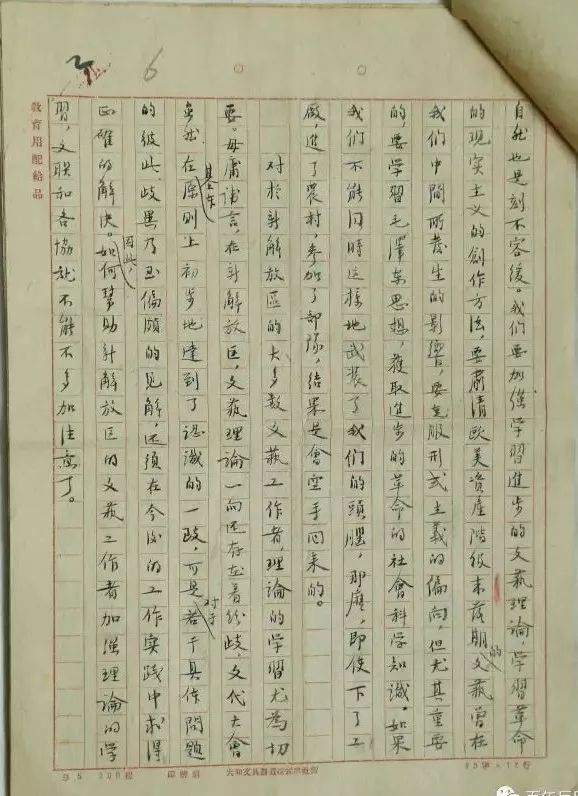 6
自然也是刻不容缓。我们要加强学习進步的文藝理論，学習革命
的现实主义的創作方法，要肅清欧美資產階級末落期的文藝曾在
我们中間所發生的影響，要克服形式主義的偏向，但尤其重要
的，要学習毛澤东思想，獲取進步的革命的社會科学知識。如果
我们不能同時这樣地武装了我们的頭腦，那麽，即使下了工
廠，進了農村，参加了部隊，结果是會空手回来的。
对於新解放區的大多数文藝工作者，理論的学習尤為切
要。毋庸諱言，在新解放区，文藝理論一向还存在着纷歧，文代大會
虽然在基本原則上初步地達到了認識的一致，可是对于若干具体問題
的彼此歧異乃至偏頗的見解，还須在今後的工作实践中求得
正確的解决。因此，如何幫助新解放区的文藝工作者加强理論的学
習，文联和各協就不能不多加注意了。
教育用配給品